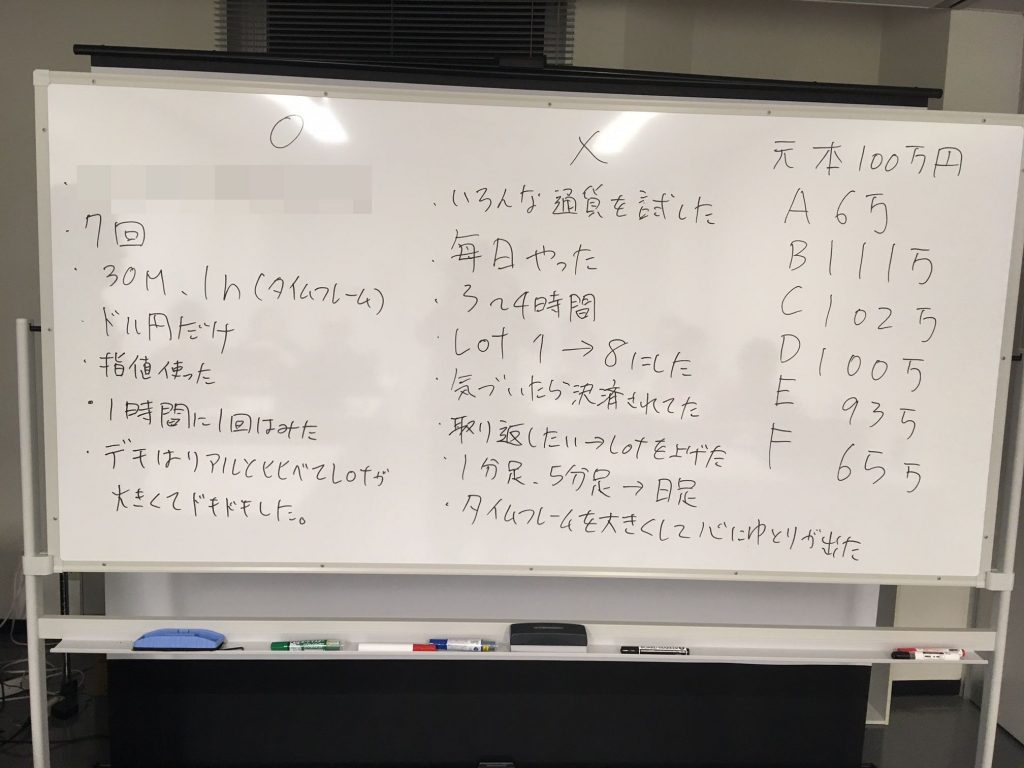 ○
・7回
・30M、1h(タイムフレーム)
・ドル円だけ
・指値使った
・1時間に1回はみた
・デモはリアルとくらべてLotが
大きくてドキドキした。
×
・いろんな通貨を試した
・毎日やった
・3〜4時間
・Lot 1→8にした
・気づいたら決済されてた
・取り返したい→Lotを上げた
・1分足、5分足→日足
・タイムフレームを大きくして心にゆとりが出た
元本100万円
A 6万
B 111万
C 102万
D 100万
E 93万
F 65万